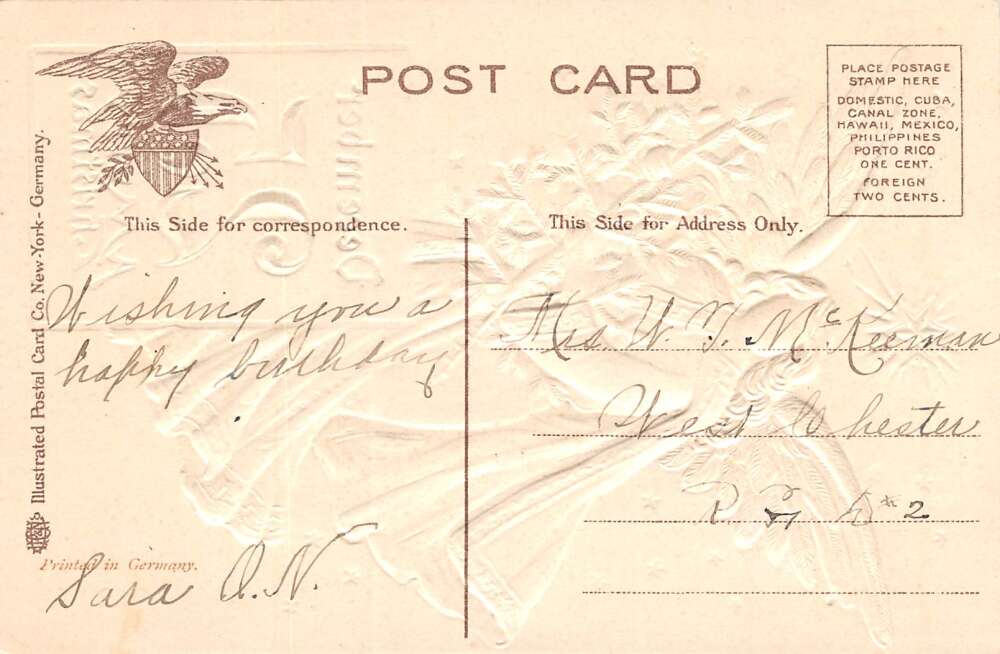 POST CARD
PLACE POSTAGE
STAMP HERE
DOMESTIC, CUBA,
CANAL ZONE,
HAWAII, MEXICO,
PHILIPPINES
PORTO RICO
ONE CENT.
FOREIGN
TWO CENTS.
This Side for correspondence.
This Side for Address Only.
Illustrated Postal Card Co. New-York - Germany.
Wishing you a
happy birthday
Sara O.N.
Printed in Germany.
Mrs W. T. McKeeman
West Chester
R F D # 2
December